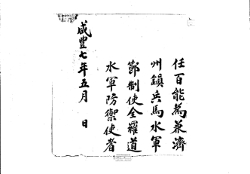 任百能爲兼濟
州鎭兵馬水軍
節制使全羅道
水軍防禦使者
咸豐七年五月　日